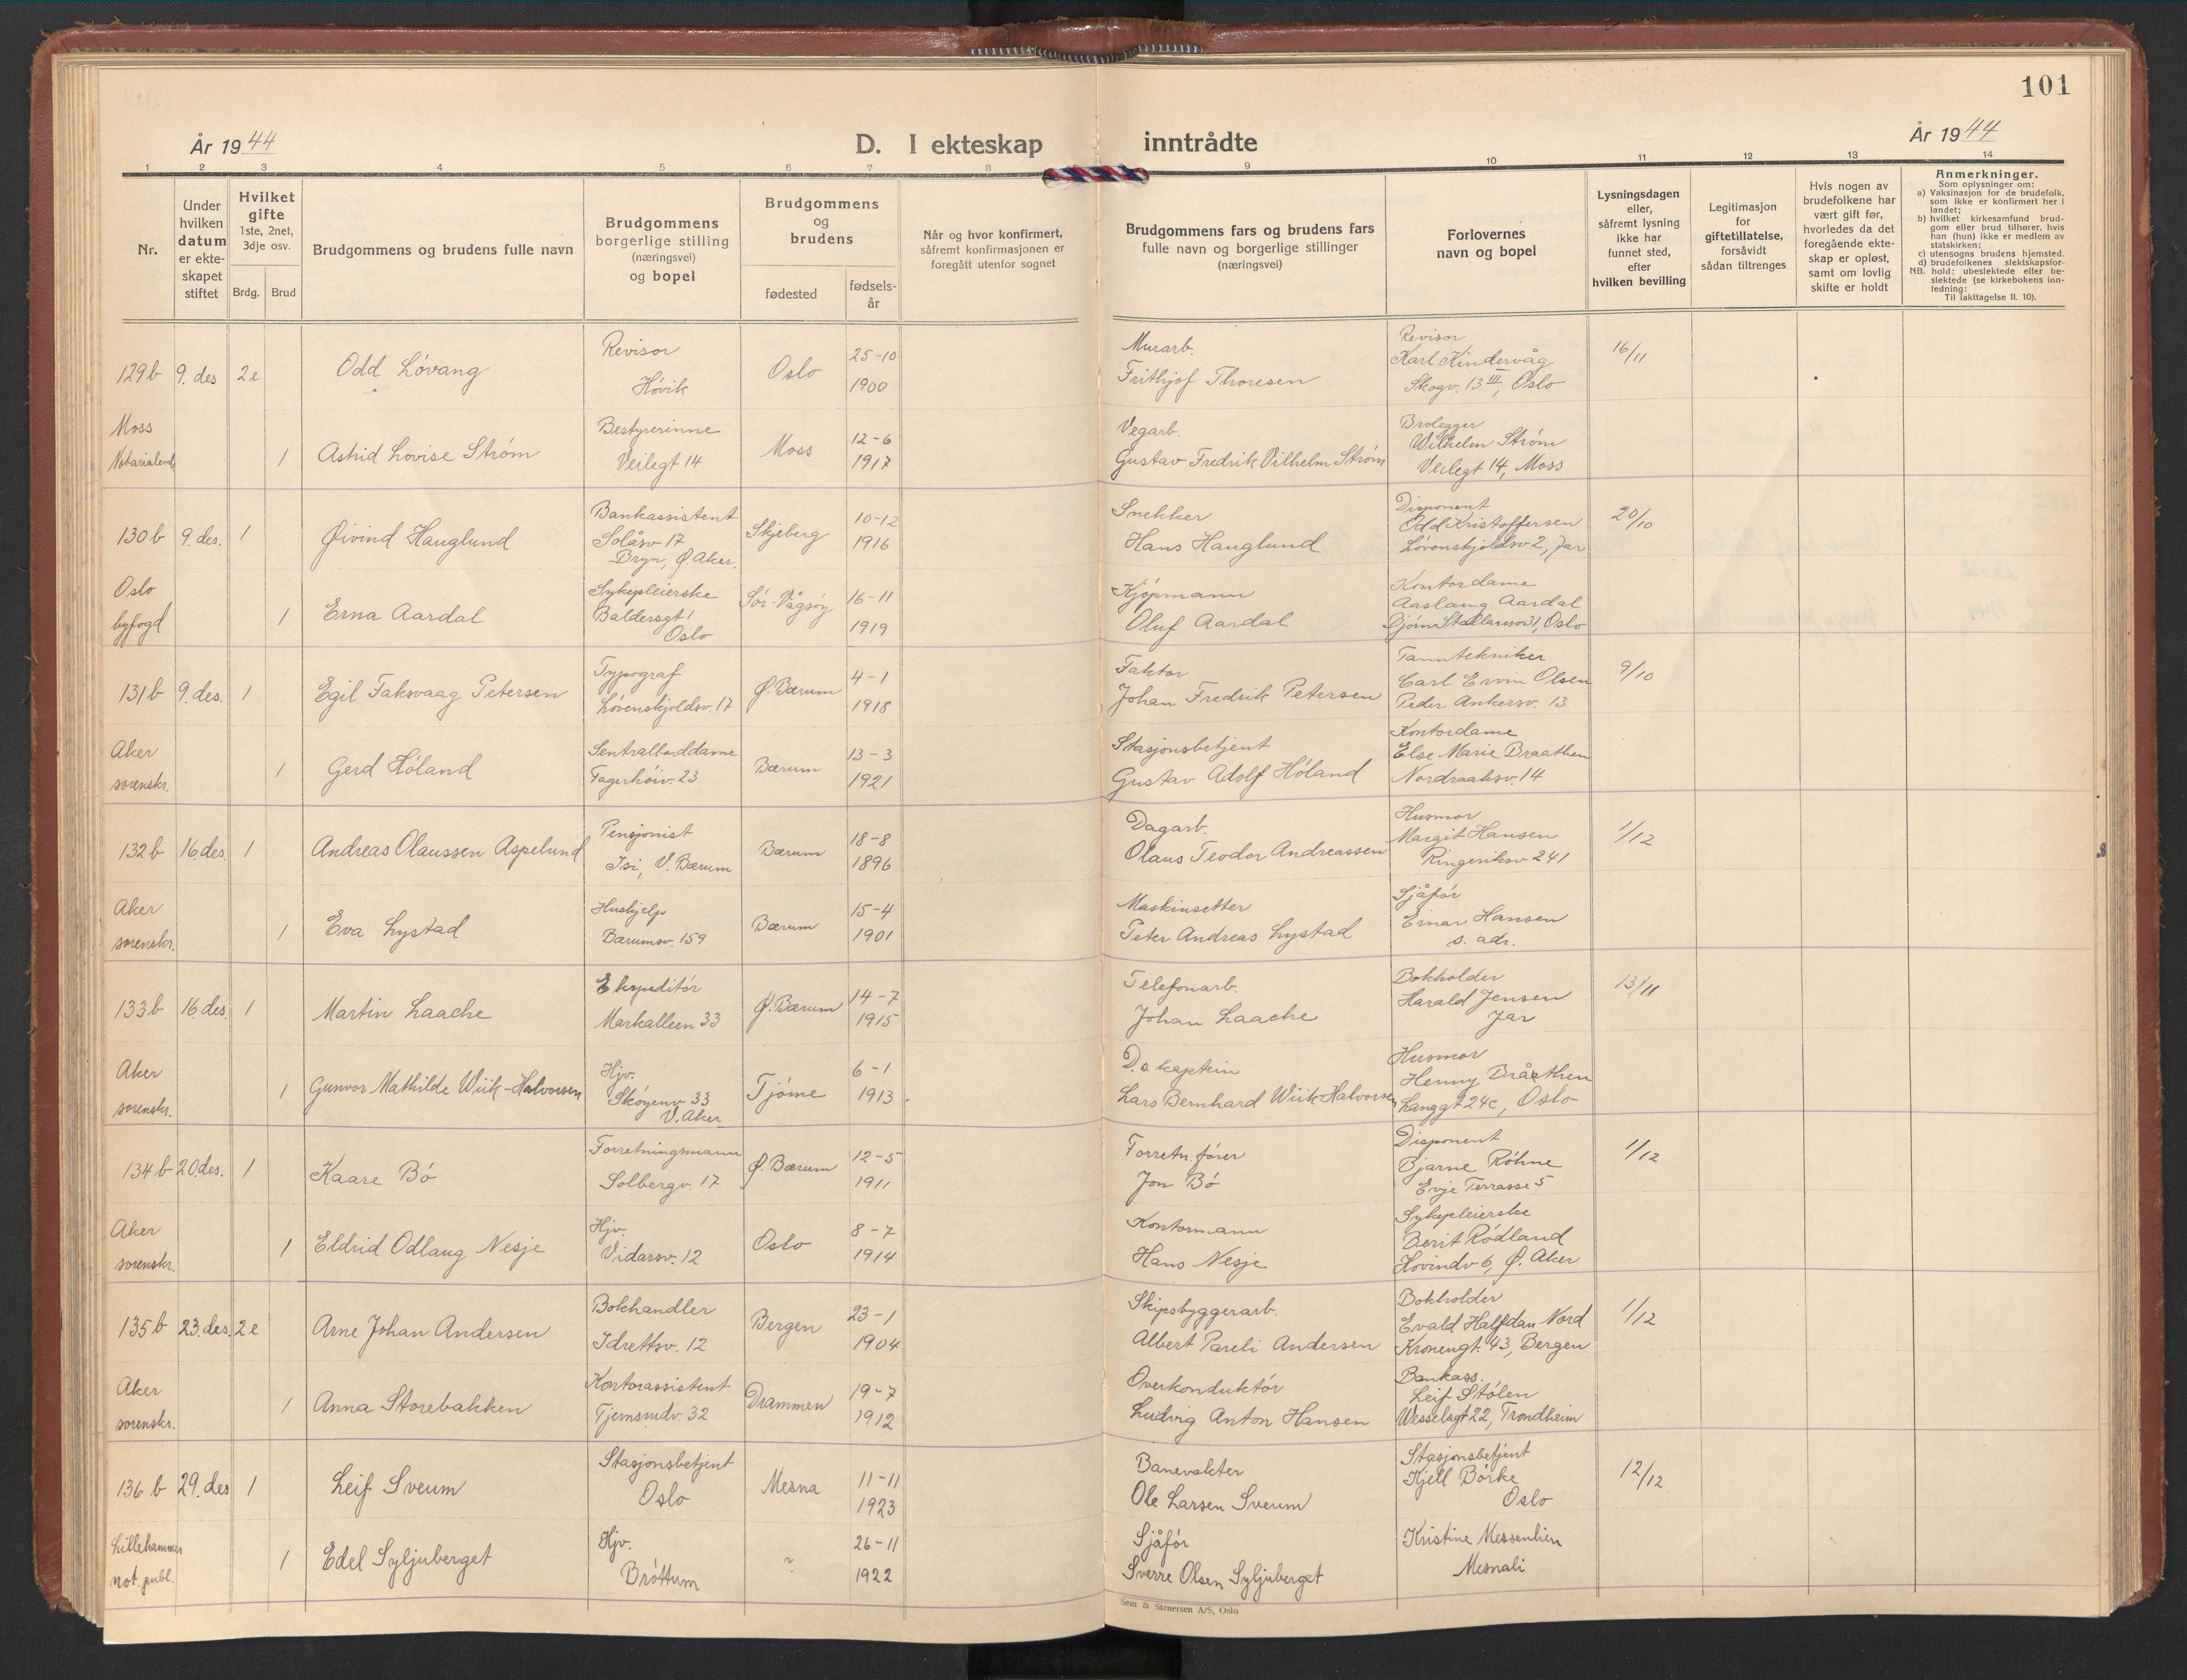 101
År 1944
D. I ekteskap inntrådte
År 1944
1 2 3 4 5 6 7 8 9 10 11 12 13 14
Nr.
Under
hvilken
datum
er ekte-
skapet
stiftet
Hvilket
gifte
1ste, 2net,
3dje osv.
Brdg. Brud
Brudgommens og brudens fulle navn
Brudgommens
borgerlige stilling
(næringsvei)
og bopel
Brudgommens
og
brudens
fødested
fødsels-
år
Når og hvor konfirmert,
såfremt konfirmasjonen er
foregått utenfor sognet
Brudgommens fars og brudens fars
fulle navn og borgerlige stillinger
(næringsvei)
Forlovernes
navn og bopel
Lysningsdagen
eller,
såfremt lysning
ikke har
funnet sted,
efter
hvilken bevilling
Legitimasjon
for
giftetillatelse,
forsåvidt
sådan tiltrenges
Hvis nogen av
brudefolkene har
vært gift før,
hvorledes da det
foregående ekte-
skap er opløst,
samt om lovlig
skifte er holdt
Anmerkninger.
Som oplysninger om:
a) Vaksinasjon for de brudefolk,
som ikke er konfirmert her i
landet;
b) hvilket kirkesamfund brud-
gom eller brud tilhører, hvis
han (hun) ikke er medlem av
statskirken;
c) utensogns brudens hjemsted.
d) brudefolkenes slektskapsfor-
hold: ubeslektede eller be-
slektede (se kirkebokens inn-
ledning:
NB. Til iakttagelse II. 10).
129 b 9. des 2e Odd Lövang
Revisor
Hövik
Oslo
25-10
1900
Murarb.
Frithjof Thoresen
Revisor
Karl Kindervåg
Skogv. 13 III, Oslo
16/11
Moss
Notarialend.
1 Astrid Lovise Ström
Bestyrerinne
Veilegt 14
Moss
12-6
1917
Vegarb.
Gustav Fredrik Vilhelm Ström
Brolegger
Wilhelm Ström
Veilegt 14, Moss
130 b 9. des. 1 Øivind Hauglund
Bankassistent
Solåsv 17
Bryn, Ø. Aker.
Skjeberg
10-12
1916
Snekker
Hans Hauglund
Disponent
Odd Kristoffersen
Lövenskjoldsv 2, Jar
20/10
Oslo
byfogd
1 Erna Aardal
Sykepleierske
Baldersgt 1
Oslo
Sör-Vågsöy
16-11
1919
Kjöpmann
Oluf Aardal
Kontordame
Aaslaug Aardal
31, Oslo
131 b 9. des. 1 Egil Faksvaag Petersen
Typograf
Lövenskjoldsv. 17
Ø. Bærum
4-1
1918
Faktor
Johan Fredrik Petersen
Tanntekniker
Carl Ervin Olsen
Peder Ankersv. 13
9/10
Aker
sorenskr.
1 Gerd Höland
Sentralborddame
Fagerhöiv. 23
Bærum
13-3
1921
Stasjonsbetjent
Gustav Adolf Höland
Kontordame
Else Marie Braathen
Nordraaksv. 14
132 b 16. des. 1 Andreas Olaussen Aspelund
Pensjonist
Isi, V. Bærum
Bærum
18-8
1896
Dagarb.
Olaus Teodor Andreassen
Husmor
Margit Hansen
Ringeriksv 241
1/12
Aker
sorenskr.
1 Eva Lystad
Hushjelp
Bærumsv. 159
Bærum
15-4
1901
Maskinsetter
Peter Andreas Lystad
Sjåför
Einar Hansen
s. adr.
133 b 16. des. 1 Martin Laache
Ekspeditör
Markalleen 33
Ø. Bærum
14-7
1915
Telefonarb.
Johan Laache
Bokholder
Harald Jensen
Jar
13/11
Aker
sorenskr.
1 Gunvor Mathilde Wiik-Halvorsen
Hjv.
Sköyenv 33
V. Aker
Tjöme
6-1
1913
D.s. kaptein
Lars Bernhard Wiik Halvorsen
Husmor
Henny Bråethen
Langgt 24c, Oslo
134 b 20. des. 1 Kaare Bö
Forretningsmann
Solbergv. 17
Ø. Bærum
12-5
1911
Forretn. förer
Jon Bö
Disponent
Bjarne Röhne
Evje Terrasse 5
1/12
Aker
sorenskr.
1 Eldrid Odlaug Nesje
Hjv.
Vidarsv. 12
Oslo
8-7
1914
Kontormann
Hans Nesje
Sykepleierske
Berit Rödland
Hovindv 6, Ø. Aker
135 b 23. des. 2e Arne Johan Andersen
Bokhandler
Idrettsv. 12
Bergen
23-1
1904
Skipsbyggerarb.
Albert Pareli Andersen
Bokholder
Evald Halfdan Nord
Kronengt. 43, Bergen
1/12
Aker
sorenskr.
1 Anna Storebakken
Kontorassistent
Tjernsrudv. 32
Drammen
19-7
1912
Overkonduktör
Ludvig Anton Hansen
Bankass.
Leif Stölen
Wesselsgt 22, Trondheim
136 b 29. des 1 Leif Sveum
Stasjonsbetjent
Oslo
Mesna
11-11
1923
Banevakter
Ole Larsen Sveum
Stasjonsbetjent
Kjell Börke
Oslo
12/12
Lillehammer
not. publ.
1 Edel Syljuberget
Hjv.
Bröttum
"
26-11
1922
Sjåför
Sverre Olsen Syljuberget
Kristine Messenlien
Mesnali
Sem & Stenersen A/S, Oslo